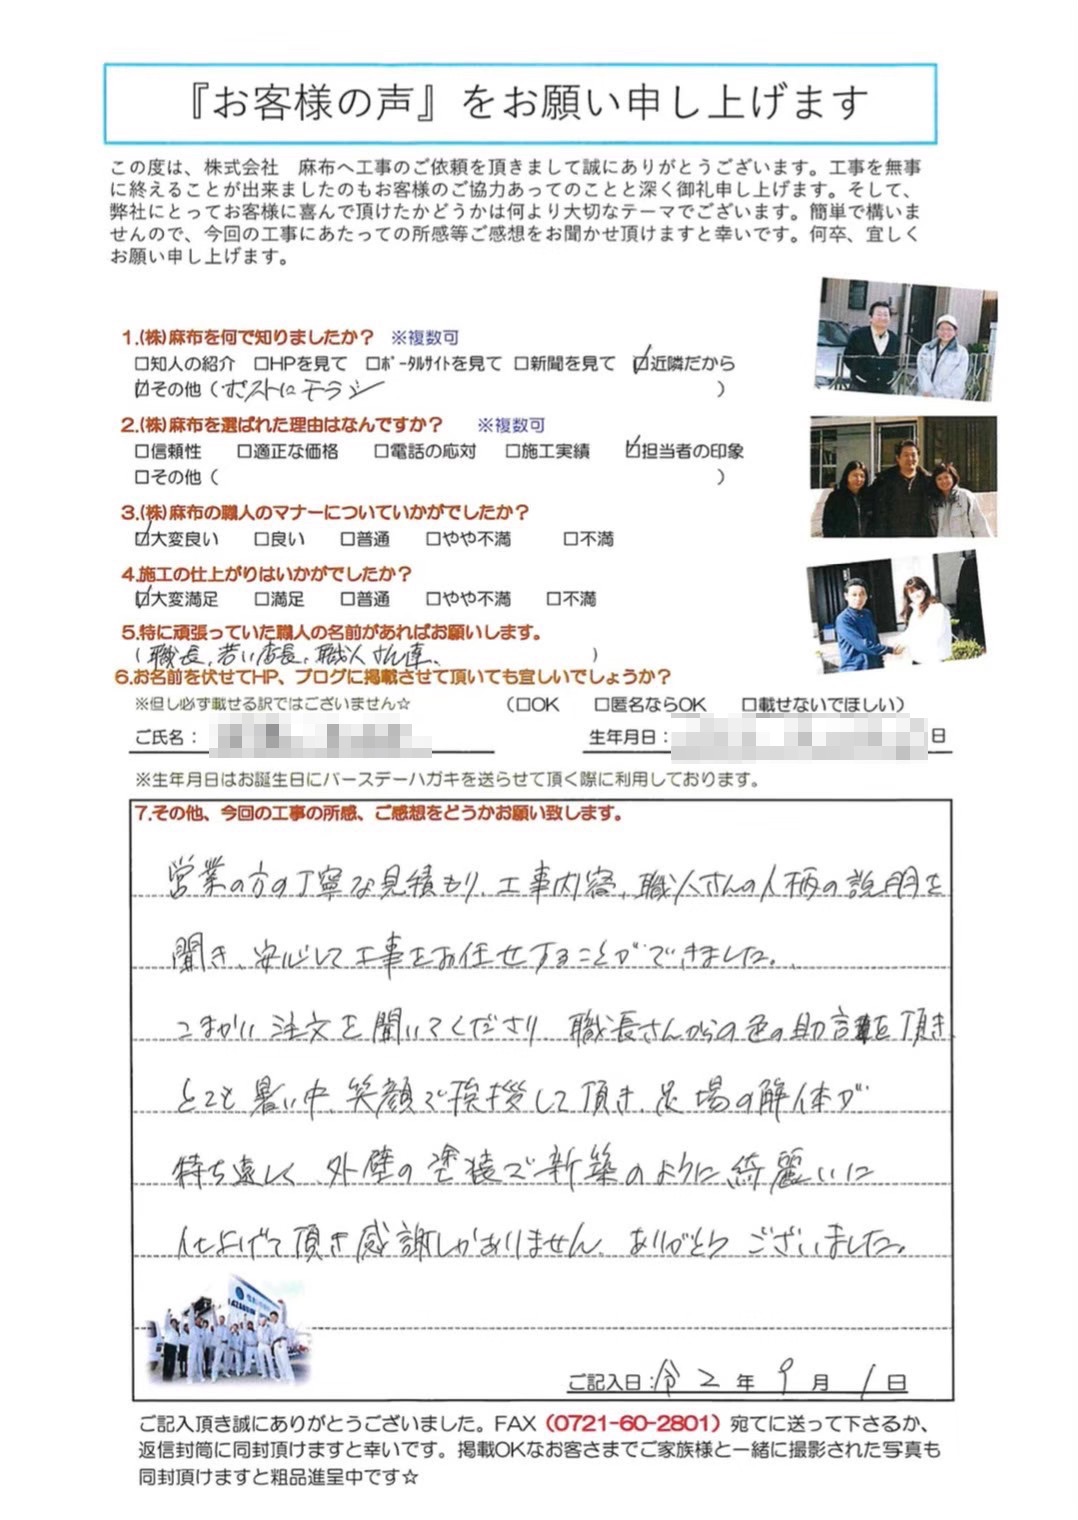 『お客様の声』をお願い申し上げます
この度は、株式会社　麻布へ工事のご依頼を頂きまして誠にありがとうございます。工事を無事
に終えることが出来ましたのもお客様のご協力あってのことと深く御礼申し上げます。そして、
弊社にとってお客様に喜んで頂けたかどうかは何より大切なテーマでございます。簡単で構いま
せんので、今回の工事にあたっての所感等ご感想をお聞かせ頂けますと幸いです。何卒、宜しく
お願い申し上げます。
1.(株)麻布を何で知りましたか？　※複数可
□知人の紹介　□HPを見て　□ﾎﾟｰﾀﾙｻｲﾄを見て　□新聞を見て　☑近隣だから
☑その他（ポストにチラシ　）
2.(株)麻布を選ばれた理由はなんですか？　※複数可
□信頼性　□適正な価格　□電話の応対　□施工実績　☑担当者の印象
□その他（　）
3.(株)麻布の職人のマナーについていかがでしたか？
☑大変良い　□良い　□普通　□やや不満　□不満
4.施工の仕上がりはいかがでしたか？
☑大変満足　□満足　□普通　□やや不満　□不満
5.特に頑張っていた職人の名前があればお願いします。
（職長、若い店長、職人さん達、　）
6.お名前を伏せてHP、ブログに掲載させて頂いても宜しいでしょうか？
※但し必ず載せる訳ではございません☆　（□OK　□匿名ならOK　□載せないでほしい）
ご氏名：　生年月日：　日
※生年月日はお誕生日にバースデーハガキを送らせて頂く際に利用しております。
7.その他、今回の工事の所感、ご感想をどうかお願い致します。
営業の方の丁寧な見積もり、工事内容、職人さんの人柄の説明を
聞き、安心して工事をお任せすることができました。
こまかい注文を聞いてくださり、職長さんからの色の助言を頂き、
とても暑い中、笑顔で挨拶して頂き、足場の解体が
待ち遠しく、外壁の塗装で新築のように綺麗いに
仕上げて頂き感謝しかありません。ありがとうございました。
ご記入日：令2年9月1日
ご記入頂き誠にありがとうございました。FAX（0721-60-2801）宛てに送って下さるか、
返信封筒に同封頂けますと幸いです。掲載OKなお客さまでご家族様と一緒に撮影された写真も
同封頂けますと粗品進呈中です☆